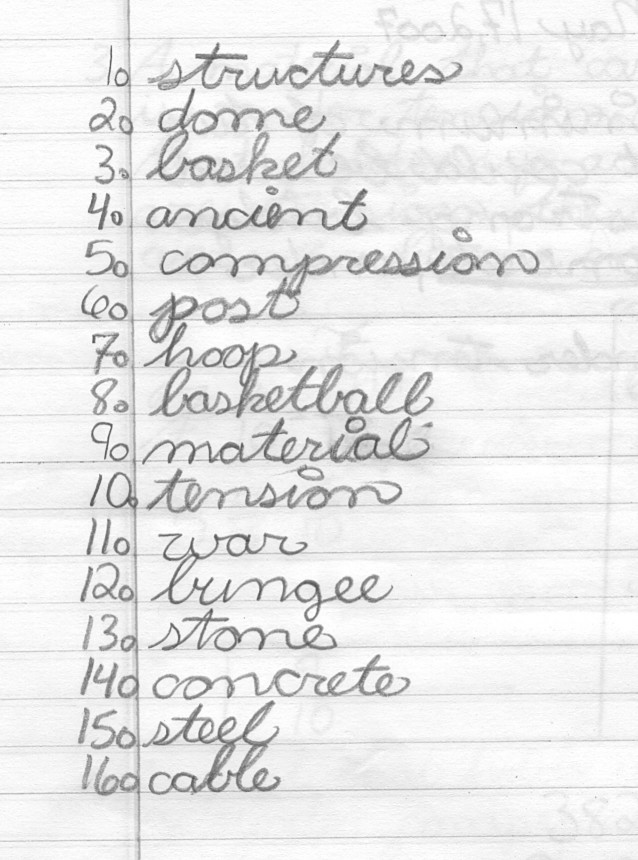 May 17 2007
1. structures
2. dome
3. basket
4. ancient
5. compression
6. post
7. hoop
8. basketball
9. material
10. tension
11. war
12. bungee
13. stone
14. concrete
15. steel
16. cable